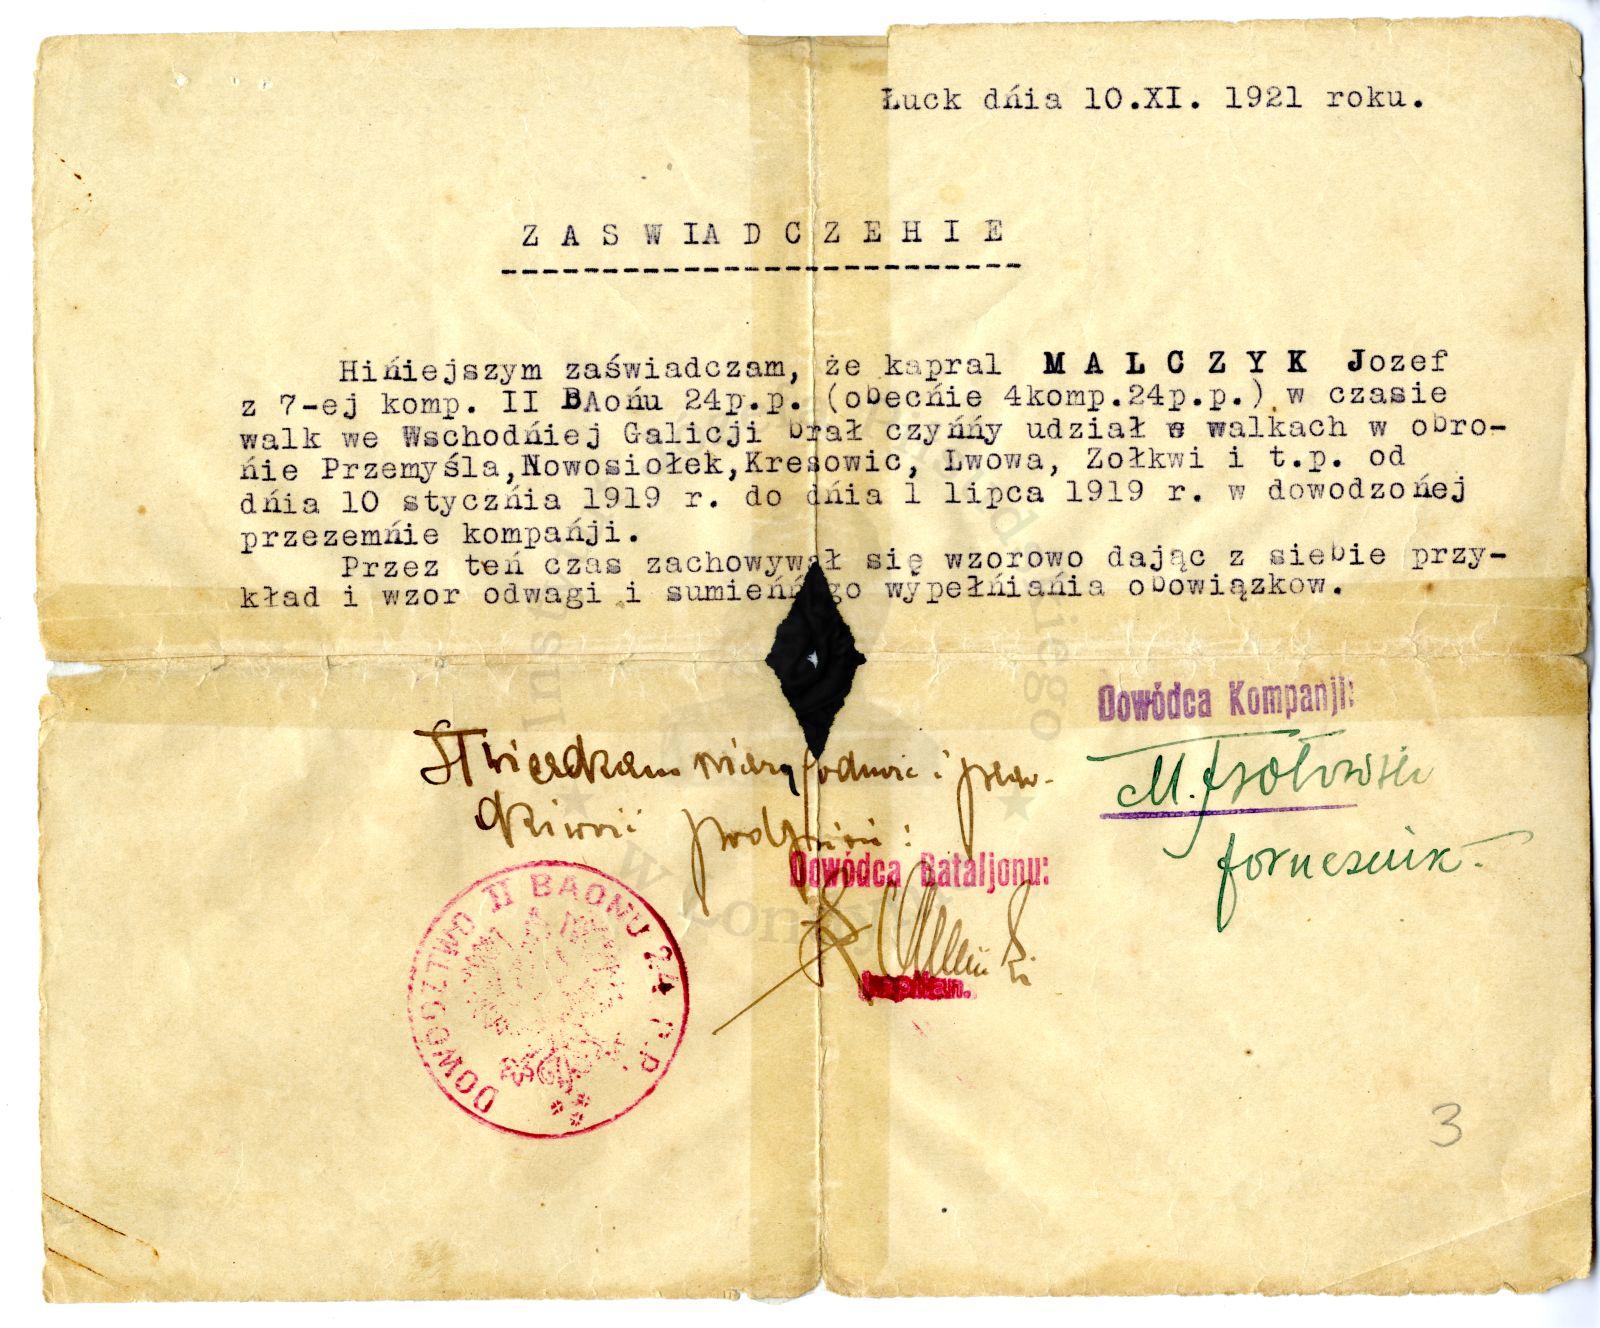 Łuck dńia 10.XI. 1921 roku.
Z A S W IA D C Z E H I E
Hińiejszym zaświadczam, że kapral M A L C Z Y K Jozef
z 7-ej komp. II BAońu 24p.p. (obecńie 4komp.24p.p.) w czasie
walk we Wschodńiej Galicji brał czyńńy udział w walkach w obro-
ńie Przemyśla,Nowosiołek,Kresowic, Lwowa, Zołkwi i t.p. od
dńia 10 styczńia 1919 r. do dńia 1 lipca 1919 r. w dowodzońej
przezemńie kompańji.
Przez teń czas zachowywał się wzorowo dając z siebie przy-
kład i wzor odwagi i sumieńńego wypełńiańia obowiązkow.
Dowódca Kompanji:
Stwierdzam wiarygodność i praw-
dziwość podpisu:
porucznik.
Dowódca Bataljonu:
kapitan.
DOWÓDZTWO II BAONU 24 P.P.
3